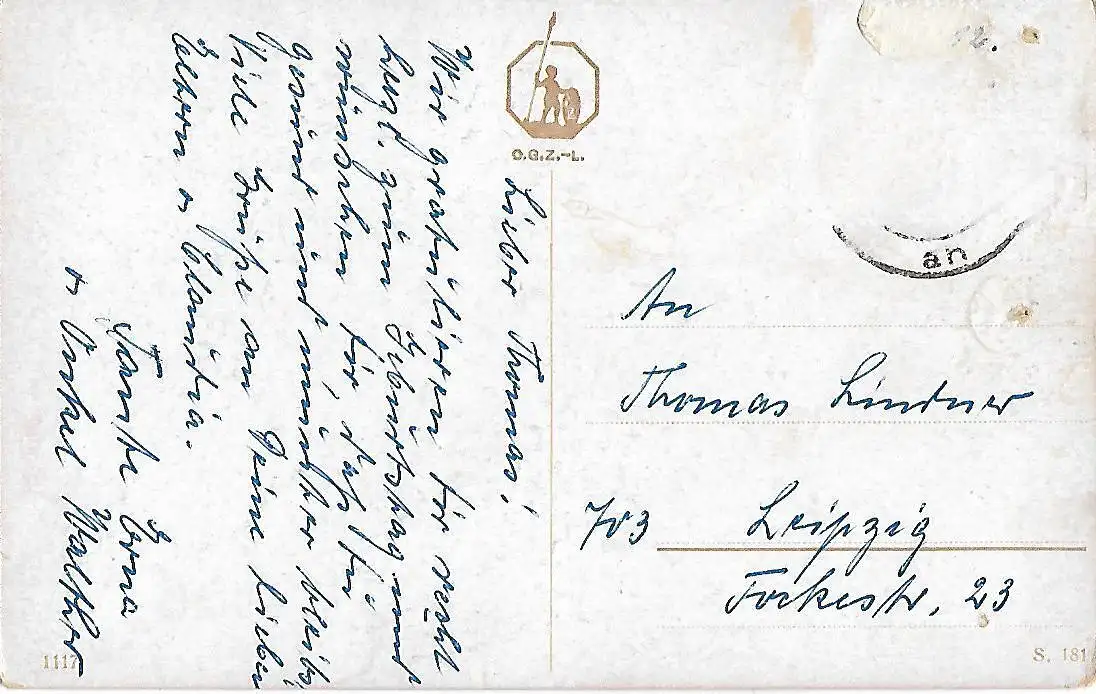 Lieber Thomas!
Wir gratulieren Dir recht
herzl. zum Geburtstag und
wünschen Dir, daß Du
gesund und munter bleibst.
Viele Grüße an Deine lieben
Eltern u. Claudia.
Tante Erna
u. Onkel Walther
O.G.Z.-L.
an
An
Thomas Lindner
703 Leipzig
Fockestr. 23
1117
S. 181